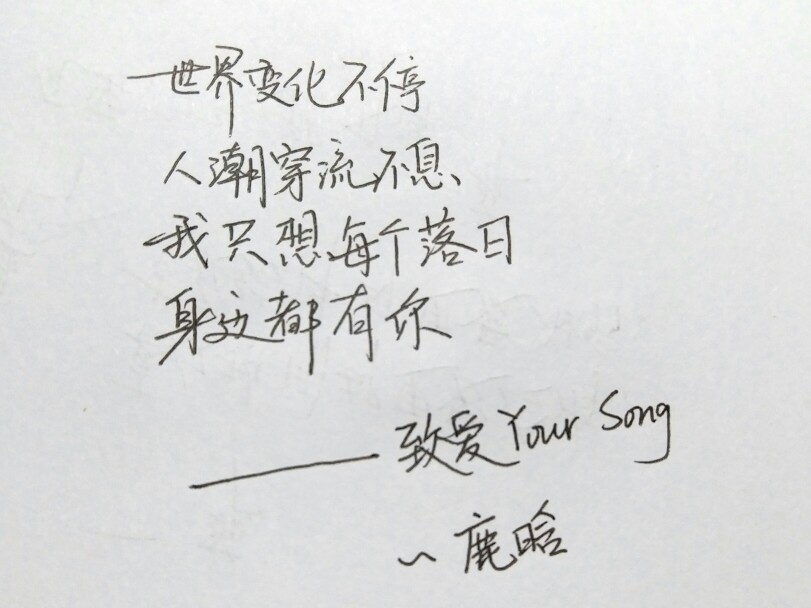 世界变化不停
人潮穿流不息
我只想每个落日
身边都有你
——致爱 Your Song
~鹿晗